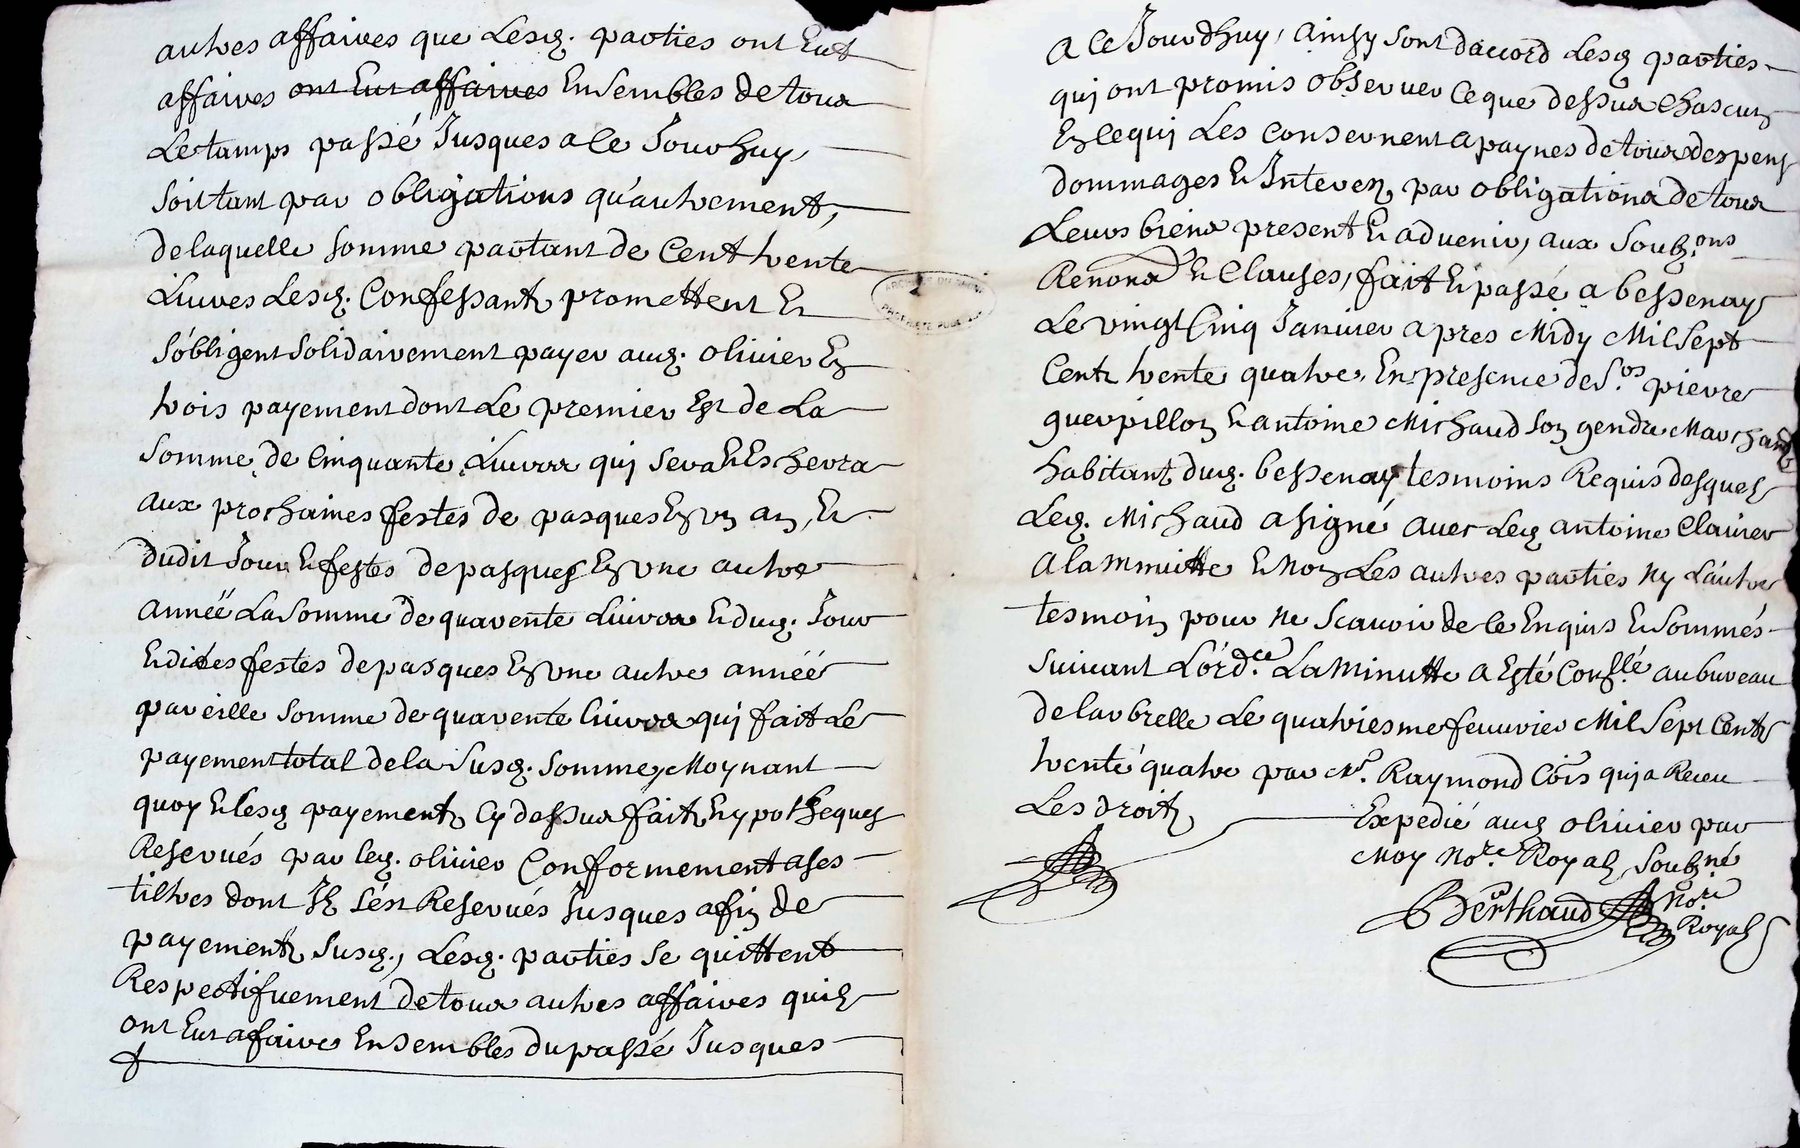 autres affaires que Lesd. parties ont Eut
affaires ont Eut affaires Ensembles de tous
Le tamps passé Jusques a ce Jourhuy,
soit tant par obligations qu'autrement,
de laquelle somme partant de Cent trente
Liuves Lesd. Confessants promettent Et
s'obligent solidairement payer aud. oliuier En
trois payement dont Le premier Est de La
somme de Cinquante Liures qui sera Et Eschevra
aux prochaines festes de pasques En un an, Et
dudit Jour Et festes de pasques En une autre
année La somme de quarente Liures Et dud. Jour
Et dites festes de pasques En une autre année
pareille somme de quarente liures qui fait Le
payement total de la susd. somme, Moynant
quoy Et lesd payements Cy dessus faits Hypotheques
Reservés par led. oliuier Conformement a ses
tiltres dont Il s'est Reservés Jusques a fin de
payements susd., Lesd. parties se quittent
Respectifuement de tous autres affaires quils
ont Eut affaires Ensembles du passé Jusques
a ce Jourdhuy, ainsy sont daccord Lesd parties
quj ont promis observer ce que dessus chascun
En ce quj Les Conservent a paynes de tous despens
dommages Et Interes, par obligations de tous
Leurs biens present Et aduenir, aux soubz.ons
Renons Et Clauses, fait Et passé a bessenay
Le vingt Cinq Januier apres Midy Mil sept
Cents trente quatre, En presence de S.rs pierre
guerpillon Et antoine Michaud son gendre Marchands
habitants dud. bessenay tesmoins Requis desquels
Led. Michaud a signé avec Led antoine Clauier
a la Minutte Et Non Les autres parties Ny L'autre
tesmoin pour Ne scauoir de ce Enquis Et sommés
suiuant L'ord.ce La Minutte a Esté Con.llé au bureau
de larbrelle Le quatriesme feuurier Mil sept Cents
trente quatre par Mr. Raymond Cois quj a Receu
Les droits
Expedié aud oliuier par
Moy No.re Royal, soubz.né
Berthaud No.re
Royal
ARCHIVES DU RHONE
PROPRIETE PUBLIQUE